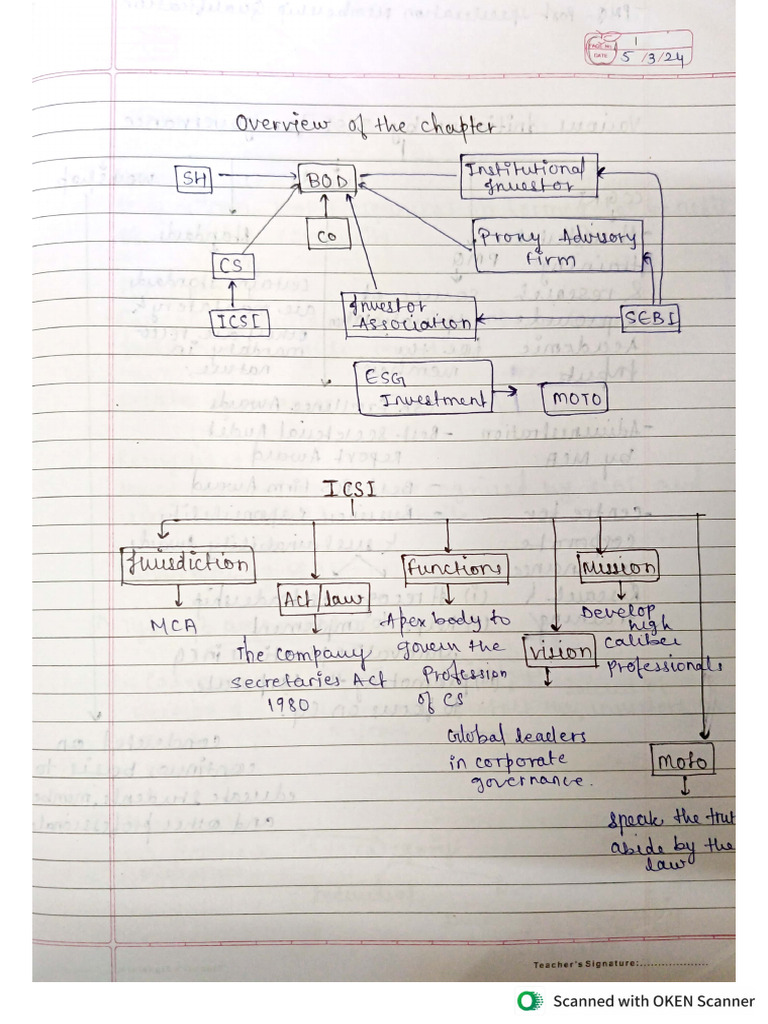 PAGE NO. 1
DATE 5/3/24
Overview of the chapter
SH
BOD
Institutional
Investor
CO
Proxy Advisory
firm
CS
ICSI
Investor
Association
SEBI
ESG
Investment
MOTO
ICSI
Jurisdiction
MCA
Act/law
The company
secretaries Act
1980
functions
Apex body to
govern the
Profession
of CS
vision
Global leaders
in corporate
governance.
Mission
Develop
high
caliber
professionals
Moto
speak the trut
abide by the
law
Teacher's Signature:
Scanned with OKEN Scanner